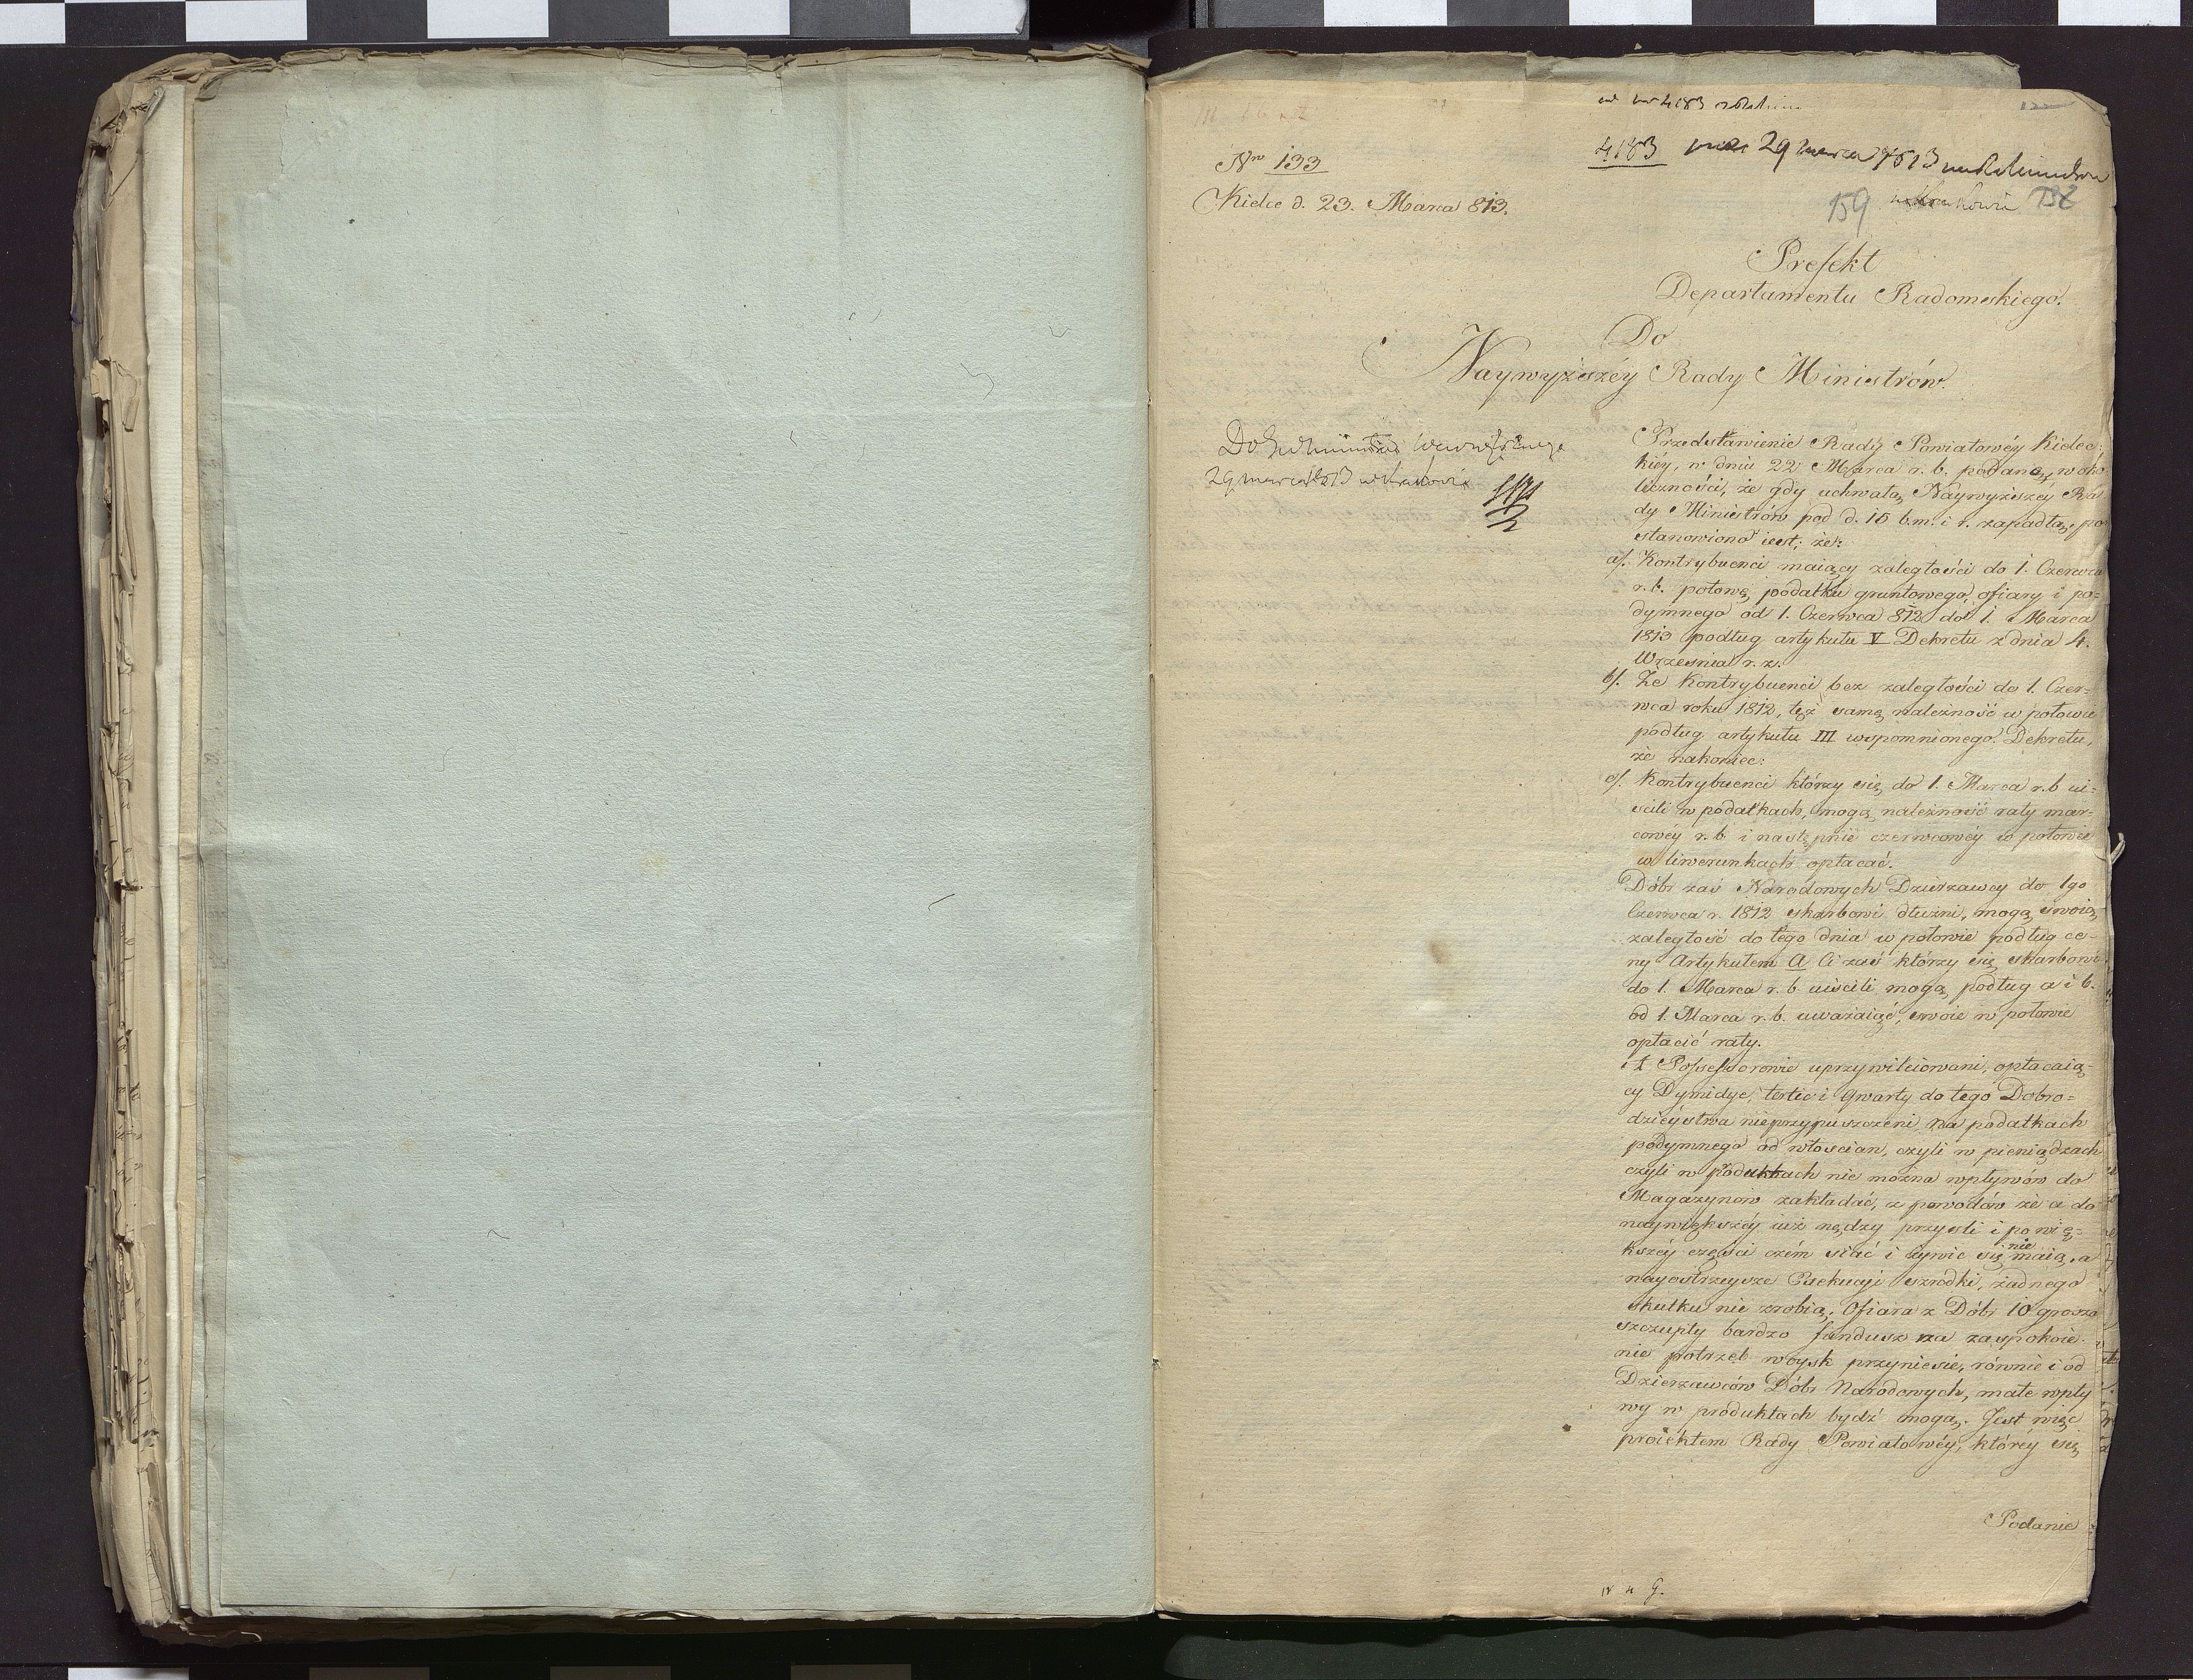 4183
Nro 133
4183 29 Marca 1813
Kielce d. 23. Marca 813.
159
Prefekt
Departamentu Radomskiego.
Do
Naywyższéy Rady Ministrów.
Do
29 marca 1813 w Krakowie
Przedstawienie Rady Powiatowéy Kielec:
kiéy, w dniu 22 Marca r. b. podane, w oko
liczności, że gdy uchwałą Naywyższéy Ra
dy Ministrów pod d. 15 b.m. i r. zapadłą, po
stanowiono iest; że:
a/. Kontrybuenci maiący zaległości do 1. Czerwca
r. b. połowę podatku gruntowego, ofiary i po=
dymnego od 1. Czerwca 812 do 1. Marca
1813 podług artykułu V Dekretu z dnia 4.
Września r. z.
b/. Że Kontrybuenci bez zaległości do 1. Czer=
wca roku 1812, też samę należność w połowie
podług artykułu III wspomnionego Dekretu,
że nakoniec:
c/. Kontrybuenci którzy się do 1. Marca r. b ui=
ścili w podatkach, mogą należność raty mar=
cowéy r. b. i następnie czerwcowéy w połowie
w liwerunkach opłacać.
Dóbr zaś Narodowych Dzierzawcy do 1go
Czerwca r. 1812 skarbowi dłużni, mogą swoią
zaległość do tego dnia w połowie podług ce-
ny Artykułem A Ci zaś którzy się skarbowi
do 1. Marca r. b. uiścili mogą podług a i b.
od 1. Marca r. b. uważaiąc, swoie w połowie
opłacić raty.
Possessorowie uprzywileiowani, opłacaią-
cy Dymidye, tertie i Qwarty do tego Dobro=
dzieystwa nieprzypuszczeni, na podatkach
podymnego od włościan, czyli w pieniądzach
czyli w Poduktach nie można wpływów do
Magazynów zakładać, z powodów że a do
naywiększéy iuż nędzy przyszli i po wię=
kszéy części czém siać i żywić się nie maią, a
nayostrzeysze Exekucyi szrodki, żadnego
skutku nie zrobią; Ofiara z Dóbr 10 grosza
szczupły bardzo fundusz na zaspokoie-
nie potrzeb woysk przyniesie, równie i od
Dzierzawców Dóbr Narodowych, małe wpły
wy w produktach bydź mogą. Jest więc
proiektem Rady Powiatowéy, któréy się
Podanie